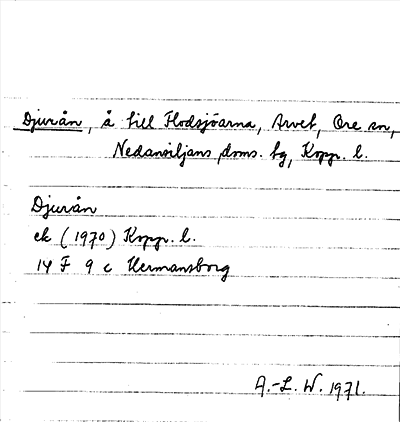 Djurån, å till Flodsjöarna, Arvet, Ore sn,
Nedansiljans doms. tg, Kopp. l.
Djurån
ek (1970) Kopp. l.
14 F 9 c Hermansborg
A.-L. W. 1971.